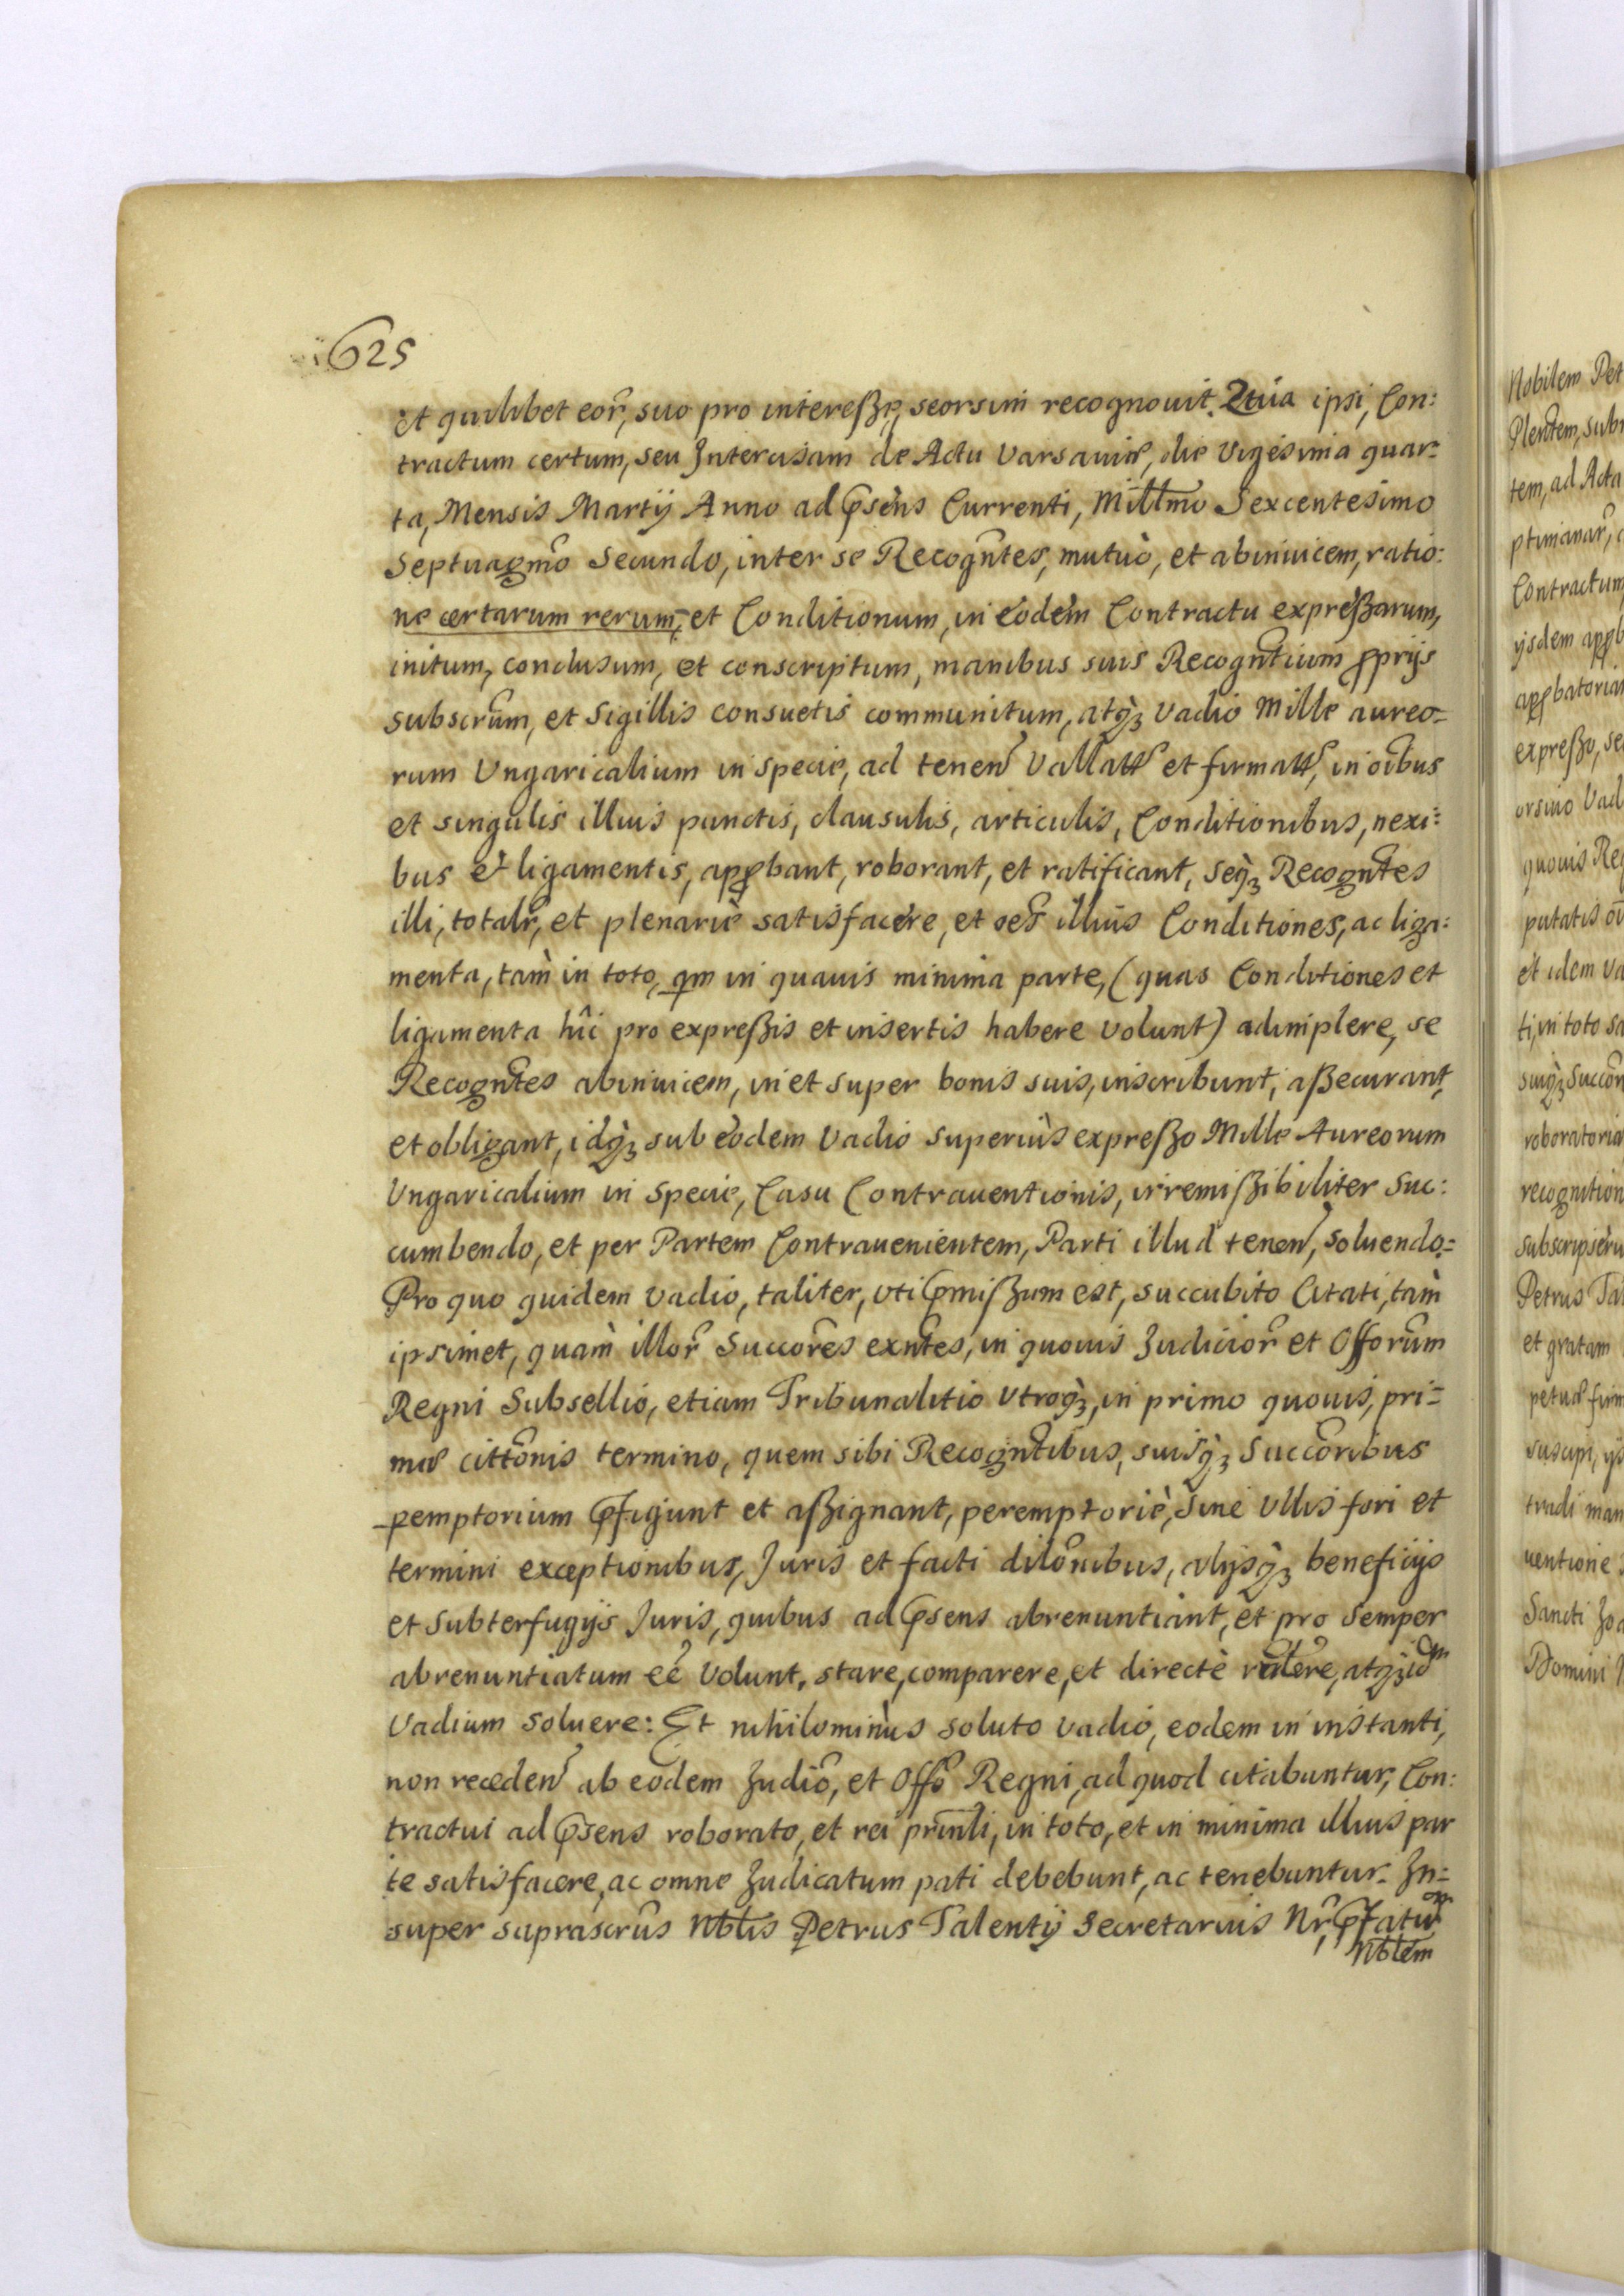 625
et quilibet eor̃, suo pro interesse, seorsim recognovit. Quia ipsi, Con:
tractum certum, seu Intercisam de Actu Varsaviæ, die Vigesima quar-
ta, Mensis Martij Anno ad p̃sens Currenti, Millmo Sexcentesimo
Septuagmõ Secundo, inter se Recogñtes, mutuò, et abinuicem, ratio:
ne certarum rerum, et Conditionum, in eodem Contractu expreßarum,
initum, conclusum, et conscriptum, manibus suis Recogñtium p̃prijs
subscrũm, et Sigillis consuetis communitum, atq̀ꝫ Vadio Mille aureo-
rum Ungaricalium in specie, ad tenen̄ Vallatt et firmatt, in oĩbus
et singulis illius punctis, clausulis, articulis, Conditionibus, nexi:
bus et ligamentis, app̃bant, roborant, et ratificant, seq̀ꝫ Recogñtes
illi, totalr̃, et plenariè satisfacere, et oẽs illius Conditiones, ac liga:
menta, tam̀ in toto, qm in quauis minima parte, (quas Conditiones et
ligamenta hîc pro expreßis et insertis habere volunt) adimplere, se
Recogñtes abinuicem, in et super bonis suis, inscribunt, aßecurant,
et obligant, idq̀ꝫ sub eodem Vadio superiùs expreßo Mille Aureorum
Ungaricalium in specie, Casu Contrauentionis, irremißibiliter Suc:
cumbendo, et per Partem Contrauenientem, Parti illud tenen̄, soluendo.=
Pro quo quidem vadio, taliter, uti p̃mißum est, succubito Citati, tam̀
ipsimet, quam̀ illor̃ Succorẽs exñtes, in quouis Judicior̃ et Offorũm
Regni Subsellio, etiam Tribunalitio Utroq̀ꝫ, in primo quouis, pri=
mæ cittõnis termino, quem sibi Recogñtibus, suisq̀ꝫ Succõribus
pemptorium p̃figunt et aßignant, peremptoriè, sine Ullis fori et
termini exceptionibus, Juris et facti dilõnibus, alijsq̀ꝫ beneficijs
et subterfugijs Juris, quibus ad p̃sens abrenuntiant, et pro semper
abrenuntiatum eẽ Volunt, stare, comparere, et directè rñtere, atq̀ꝫ idm
Vadium soluere: Et nihilominùs soluto vadio, eodem in instanti,
non receden̄ ab eodem Judiõ, et Offõ Regni, ad quod citabuntur, Con:
tractui ad p̃sens roborato, et rei prinl̃i, in toto, et in minima illius par
te satisfacere, ac omne Judicatum pati debebunt, ac tenebuntur. In=
super suprascrũs Nblis Petrus Talentij Secretarius Nr̃, p̃fatum
Nblem